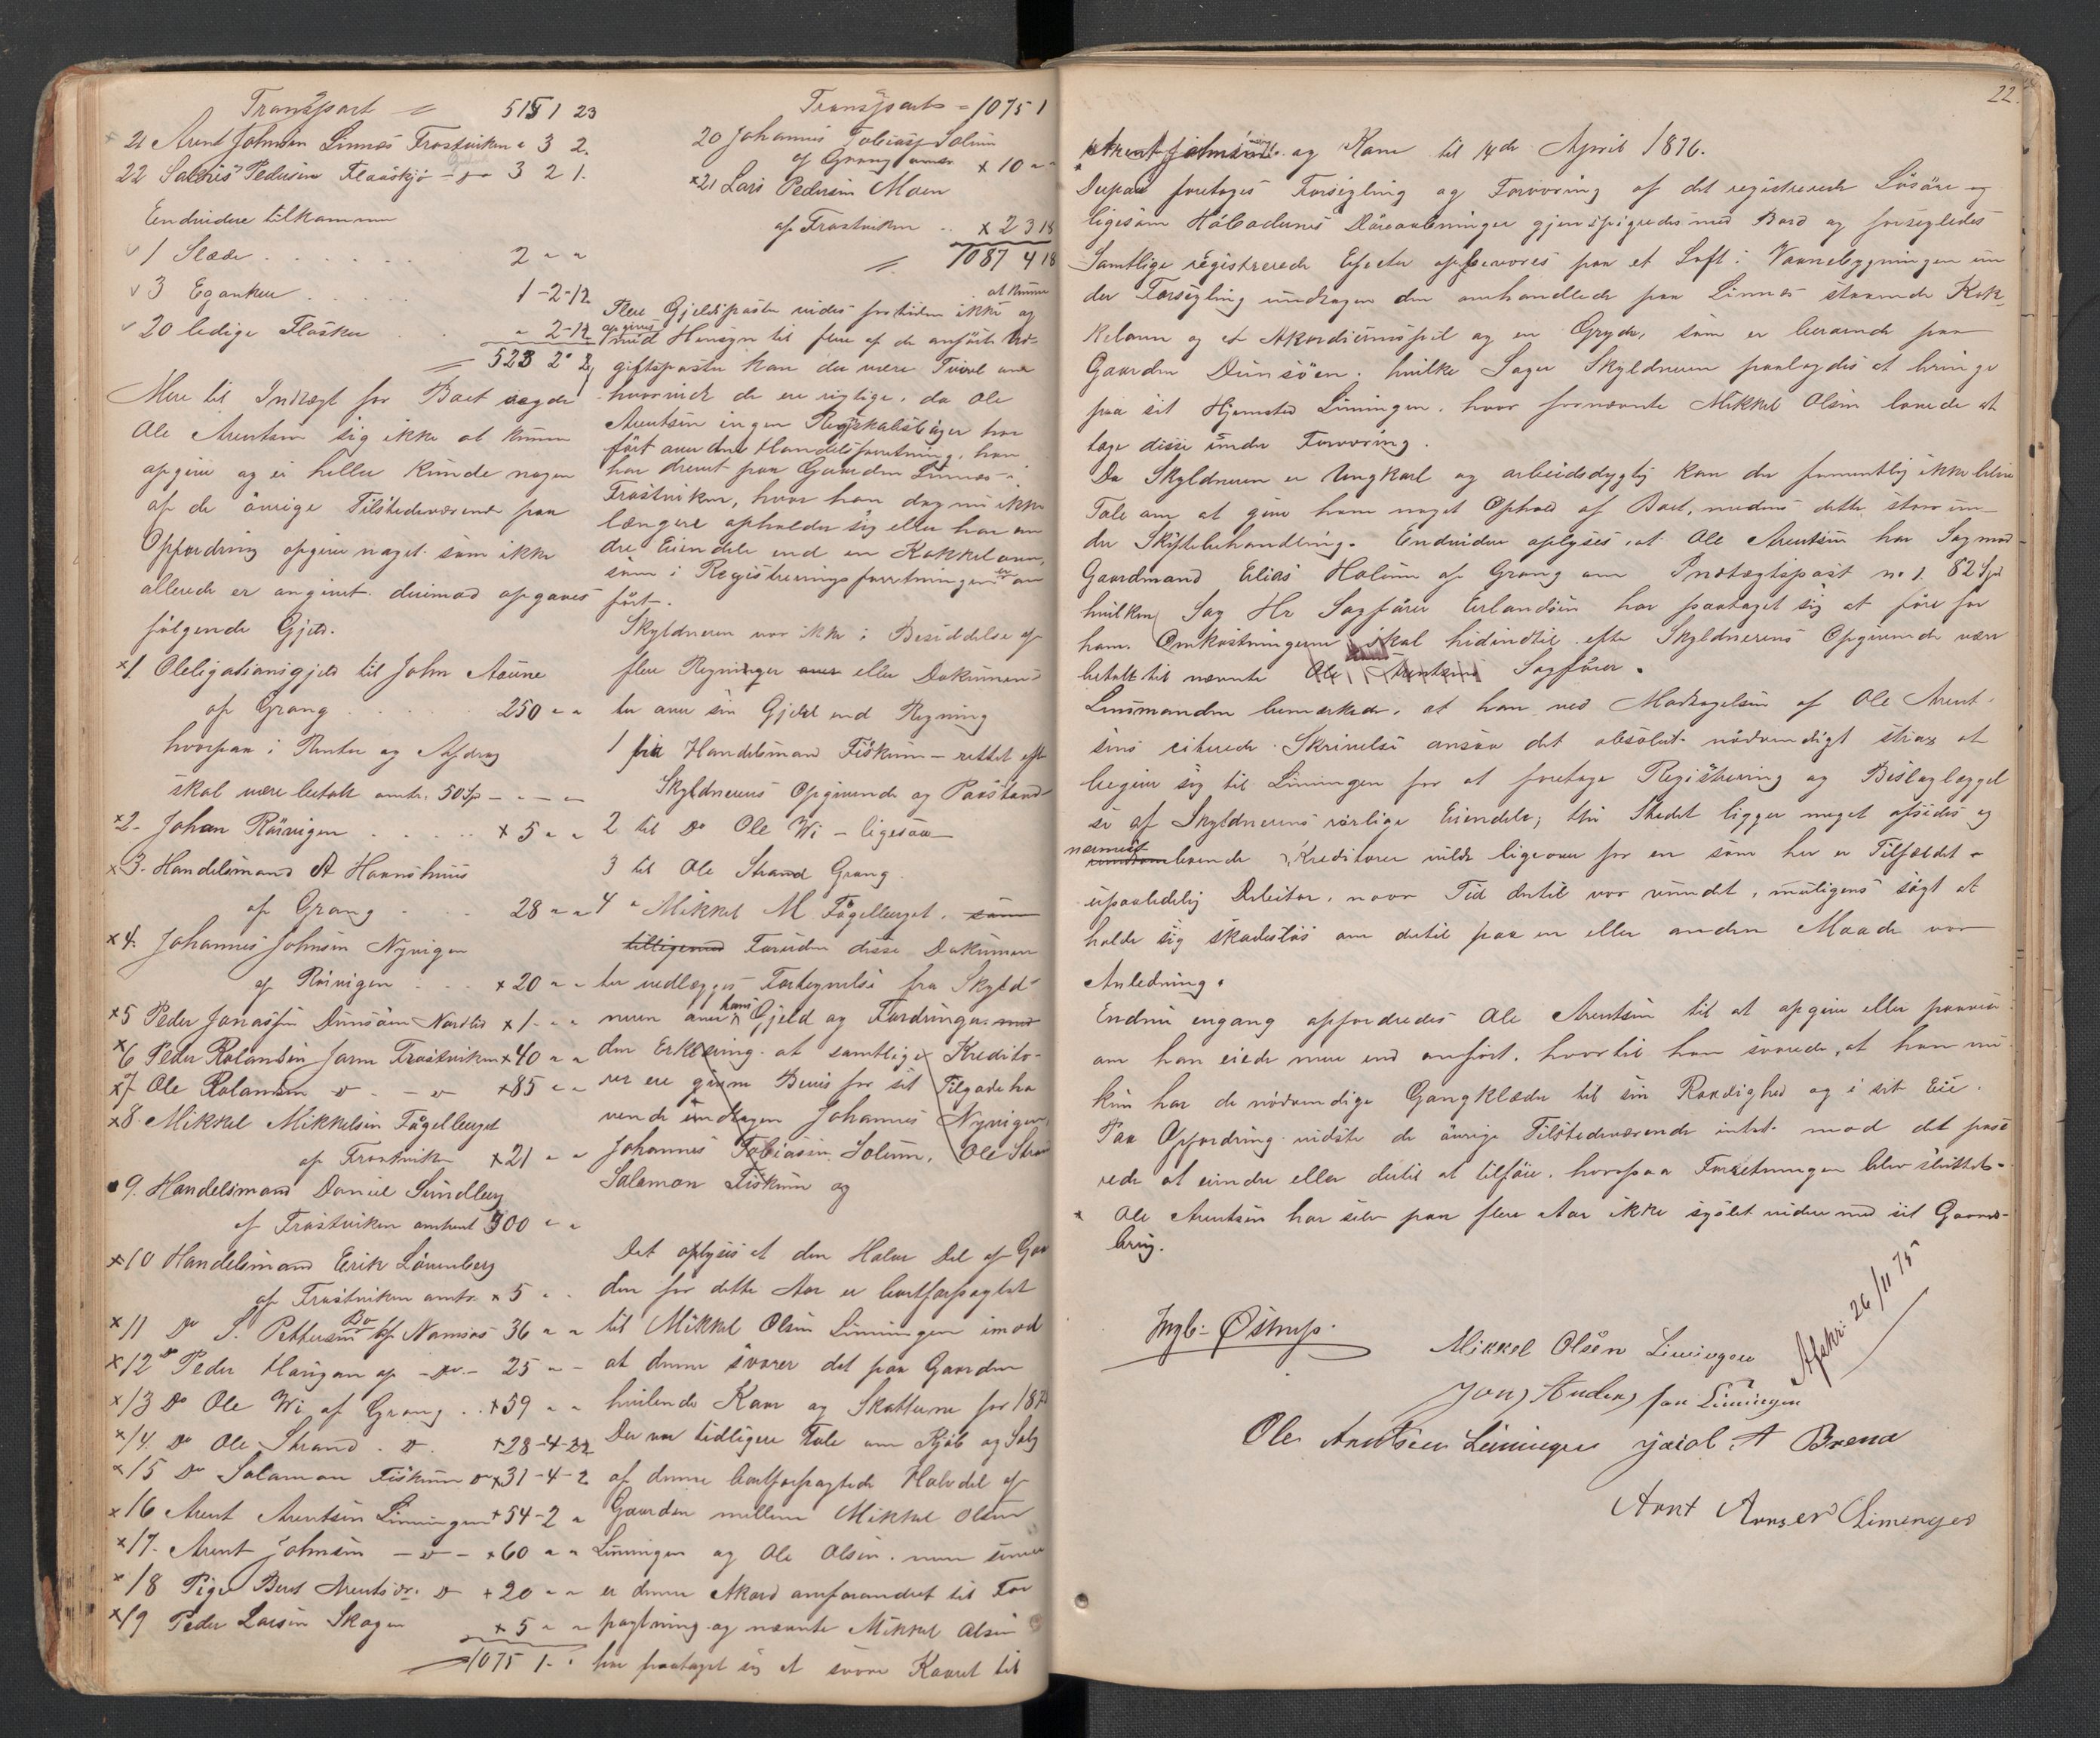 Transport 515 1 23
21 Arent Johnsen Linnæs Frostviken " 3 2.
22 Pedersen Flaaskjø 3 2 1.
Endvidere tilkommer
1 Slæde 2 " "
3 Eganker 1-2-12
20 ledige Flasker " 2-12
523 2
Mere til Indtægt for Boet sagde
Ole Arentsen sig ikke at kunne
opgive og ei heller kunde nogen
af de övrige Tilstedeværende paa
Opfordring opgive noget som ikke
allerede er angivet. derimod opgaves
følgende Gjeld.
x1. Obligationsgjeld til John Aaune
af Grong 250 " "
hvorpaa i Renter og Afdrag
skal være betalt omtr. 50 Sp - - -
x2. Johan Röirvigen x 5 " "
x3. Handelsmand A Havnshuus
af Grong 28 " "
x4. Johannes Johnsen Nyvigen
af Röirvigen x 20 " "
x5 Peder Jonassen Dunsöen Nordlid x 1- " "
x6 Peder Rolandsen Jorm Frostviken x 40 " "
x7 Ole Rolandsen D - D x 85 " "
x8 Mikkel Mikkelsen Fågelberget
af Frostviken x 21 " "
9. Handelsmand Daniel Sundberg
af Frostviken omtrent 300 " "
x10 Handelsmand Erik Lövenberg
af Frostviken omtr. x 5 " "
x11 Do S. Pettersens Bo af Namsos 36 " "
x12 Do Peder Haugan af - Do - 25 " "
x13 Do Ole Wi af Grong x 59 " "
x14. Do Ole Strand D x 28-4-22
x15 Do Salamon Fiskum D x 31-4-2
x16 Arent Arentsen Linningen x 54-2 "
x17. Arent Johnsen - D - x 60 " "
x18 Pige Beret Arentsdr. D x 20 " "
x19 Peder Larsen Skogen x 5 " "
1075 1 - "
Transport = 1075 1
20 Johannes Tobiasen Solum
af Grong x 10 " "
x21 Lars Pedersen Moen
af Frostviken x 2 3 18
1087 4 18
Flere Gjeldsposter vides for tiden ikke at kunne
opgives og
med Hensyn til flere af de anförte Ud-
giftsposter kan der være Tvivl om
hvorvidt de ere rigtige, da Ole
Arentsen ingen Regnskabsböger har
fört over den Handelsforretning, han
har drevet paa Gaarden Linnæs i
Frostviken, hvor han dog nu ikke
længere opholder sig eller har an
dre Eiendele end en Kakkelovn,
som i Registreringsforretningen er an
fört.
Skyldneren var ikke i Besiddelse af
flere Regninger over eller Dokumen-
ter over sin Gjeld end Regning
1 fra Handelsmand Fiskum - rettet efter
Skyldnerens Opgivende og Paastand
2 til Do Ole Wi - ligesaa
3 til Ole Strand Grong
4 " Mikkel M Fågelberget. som
tilligemed Foruden disse Dokumen
ter vedlægges Fortegnelse fra Skyld-
neren over hans Gjeld og Fordringer. med
den Erklæring at samtlige Kredito-
rer ere givne Bevis for sit Tilgodeha
vende undtagen Johannes Nyvigen,
Johannes Tobiasen Solum, Ole Strand
Salamon Fiskum og
Det oplyses at den Halve Del af Gaar
den for dette Aar er bortforpagtet
til Mikkel Olsen Linningen imod
at denne svarer det paa Gaarden
hvilende Kaar og Skatterne for 187
Der var tidligere Tale om Kjöb og Salg
af denne bortforpagtede Halvdel af
Gaarden mellem Mikkel Olsen
Linningen og Ole Olsen. men senere
er denne Akord omforandret til For
pagtning og nævnte Mikkel Olsen
har paataget sig at svare Kaaret til
22.
Arent Johnsen og Kone til 14de April 1876.
Derpaa foretoges Forsegling og Forvaring af det registrerede Lösöre og
ligesom Höladernes Döraabninger gjenspigredes med Bord og forsegledes
Samtlige registrerede Effecter opbevares paa et Loft i Vaanebygningen un
der Forsegling undtagen den omhandlede paa Linnæs staaende Kak-
kelovn og et Akordiumspil og en Gryde, som er beroende paa
Gaarden Dunsöen. hvilke Sager Skyldneren paalagdes at bringe
paa sit Hjemsted Linningen, hvor fornævnte Mikkel Olsen lovede at
tage disse under Forvaring.
Da Skyldneren er Ungkarl og arbeidsdygtig kan der formentlig ikke blive
Tale om at give ham noget Ophold af Boet, medens dette staar un-
der Skiftebehandling. Endvidere oplyses, at Ole Arentsen har Sag mod
Gaardmand Elias Holum af Grong om Indtægtspost no 1. 82 Spd
hvilken Sag Hr Sagförer Erlandsen har paataget sig at före for
ham. Omkostningerne skal hidindtil efter Skyldnerens Opgivende være
betalt til nævnte Ole Arentsens Sagförer.
Lensmanden bemærkede, at han ved Modtagelsen af Ole Arent-
sens citerede Skrivelse ansaa det absolut nödvendigt strax at
begive sig til Linningen for at foretage Registrering og Beslaglæggel
se af Skyldnerens rörlige Eiendele; thi Stedet ligger meget afsides og
nærmest boende Kreditorer vilde ligeover for en som her er Tilfældet -
upaalidelig Debitor, naar Tid dertil var vundet, muligens sögt at
holde sig skadeslös om dertil paa en eller anden Maade var
Anledning.
Endnu engang opfordredes Ole Arentsen til at opgive eller paavise
om han eiede mere end anfört, hvortil han svarede, at han nu
kun har de nödvendige Gangklæder til sin Raadighed og i sit Eie.
Paa Opfordring vidste de övrige Tilstedeværende intet mod det passe
rede at erindre eller dertil at tilföie, hvorpaa Forretningen blev sluttet.-
x Ole Arentsen har selv paa flere Aar ikke sysslet videre med sit Gaards-
brug.
Ingb. Østrup.
Afskr: 26/11 75
Mikkel Olsen Liningen
Jon Anders paa Linningen
Ole Arntsen Leiningen Jakob A Brena
Arnt Arnsen Limengen